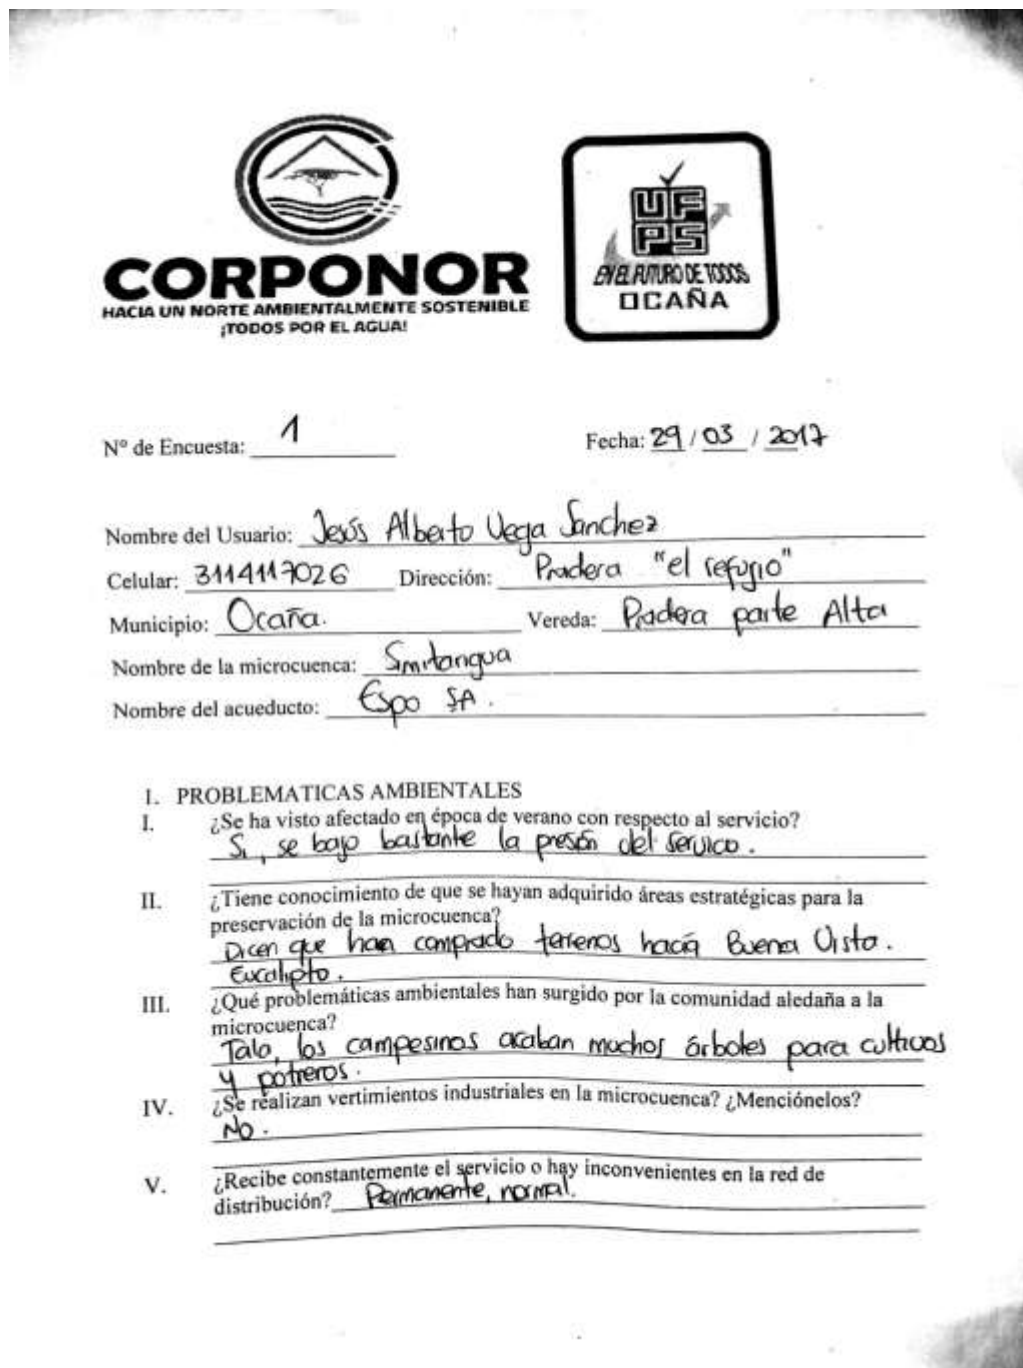 CORPONOR
HACIA UN NORTE AMBIENTALMENTE SOSTENIBLE
¡TODOS POR EL AGUA!
UF
PS
EN EL FUTURO DE TODOS
OCAÑA
Nº de Encuesta: 1 Fecha: 29 / 03 / 2017
Nombre del Usuario: Jesús Alberto Vega Sanchez
Celular: 3114117026 Dirección: Pradera "el refugio"
Municipio: Ocaña. Vereda: Pradera parte Alta
Nombre de la microcuenca: Smitangua
Nombre del acueducto: Espo SA.
1. PROBLEMATICAS AMBIENTALES
I. ¿Se ha visto afectado en época de verano con respecto al servicio?
Si, se bajo bastante la presón del servico.
II. ¿Tiene conocimiento de que se hayan adquirido áreas estratégicas para la
preservación de la microcuenca?
Dicen que han comprado terrenos hacía Buena Vista.
Eucalipto.
III. ¿Qué problemáticas ambientales han surgido por la comunidad aledaña a la
microcuenca?
Tala, los campesinos acaban muchos árboles para cultivos
y potreros.
IV. ¿Se realizan vertimientos industriales en la microcuenca? ¿Menciónelos?
No.
V. ¿Recibe constantemente el servicio o hay inconvenientes en la red de
distribución? Permanente, normal.